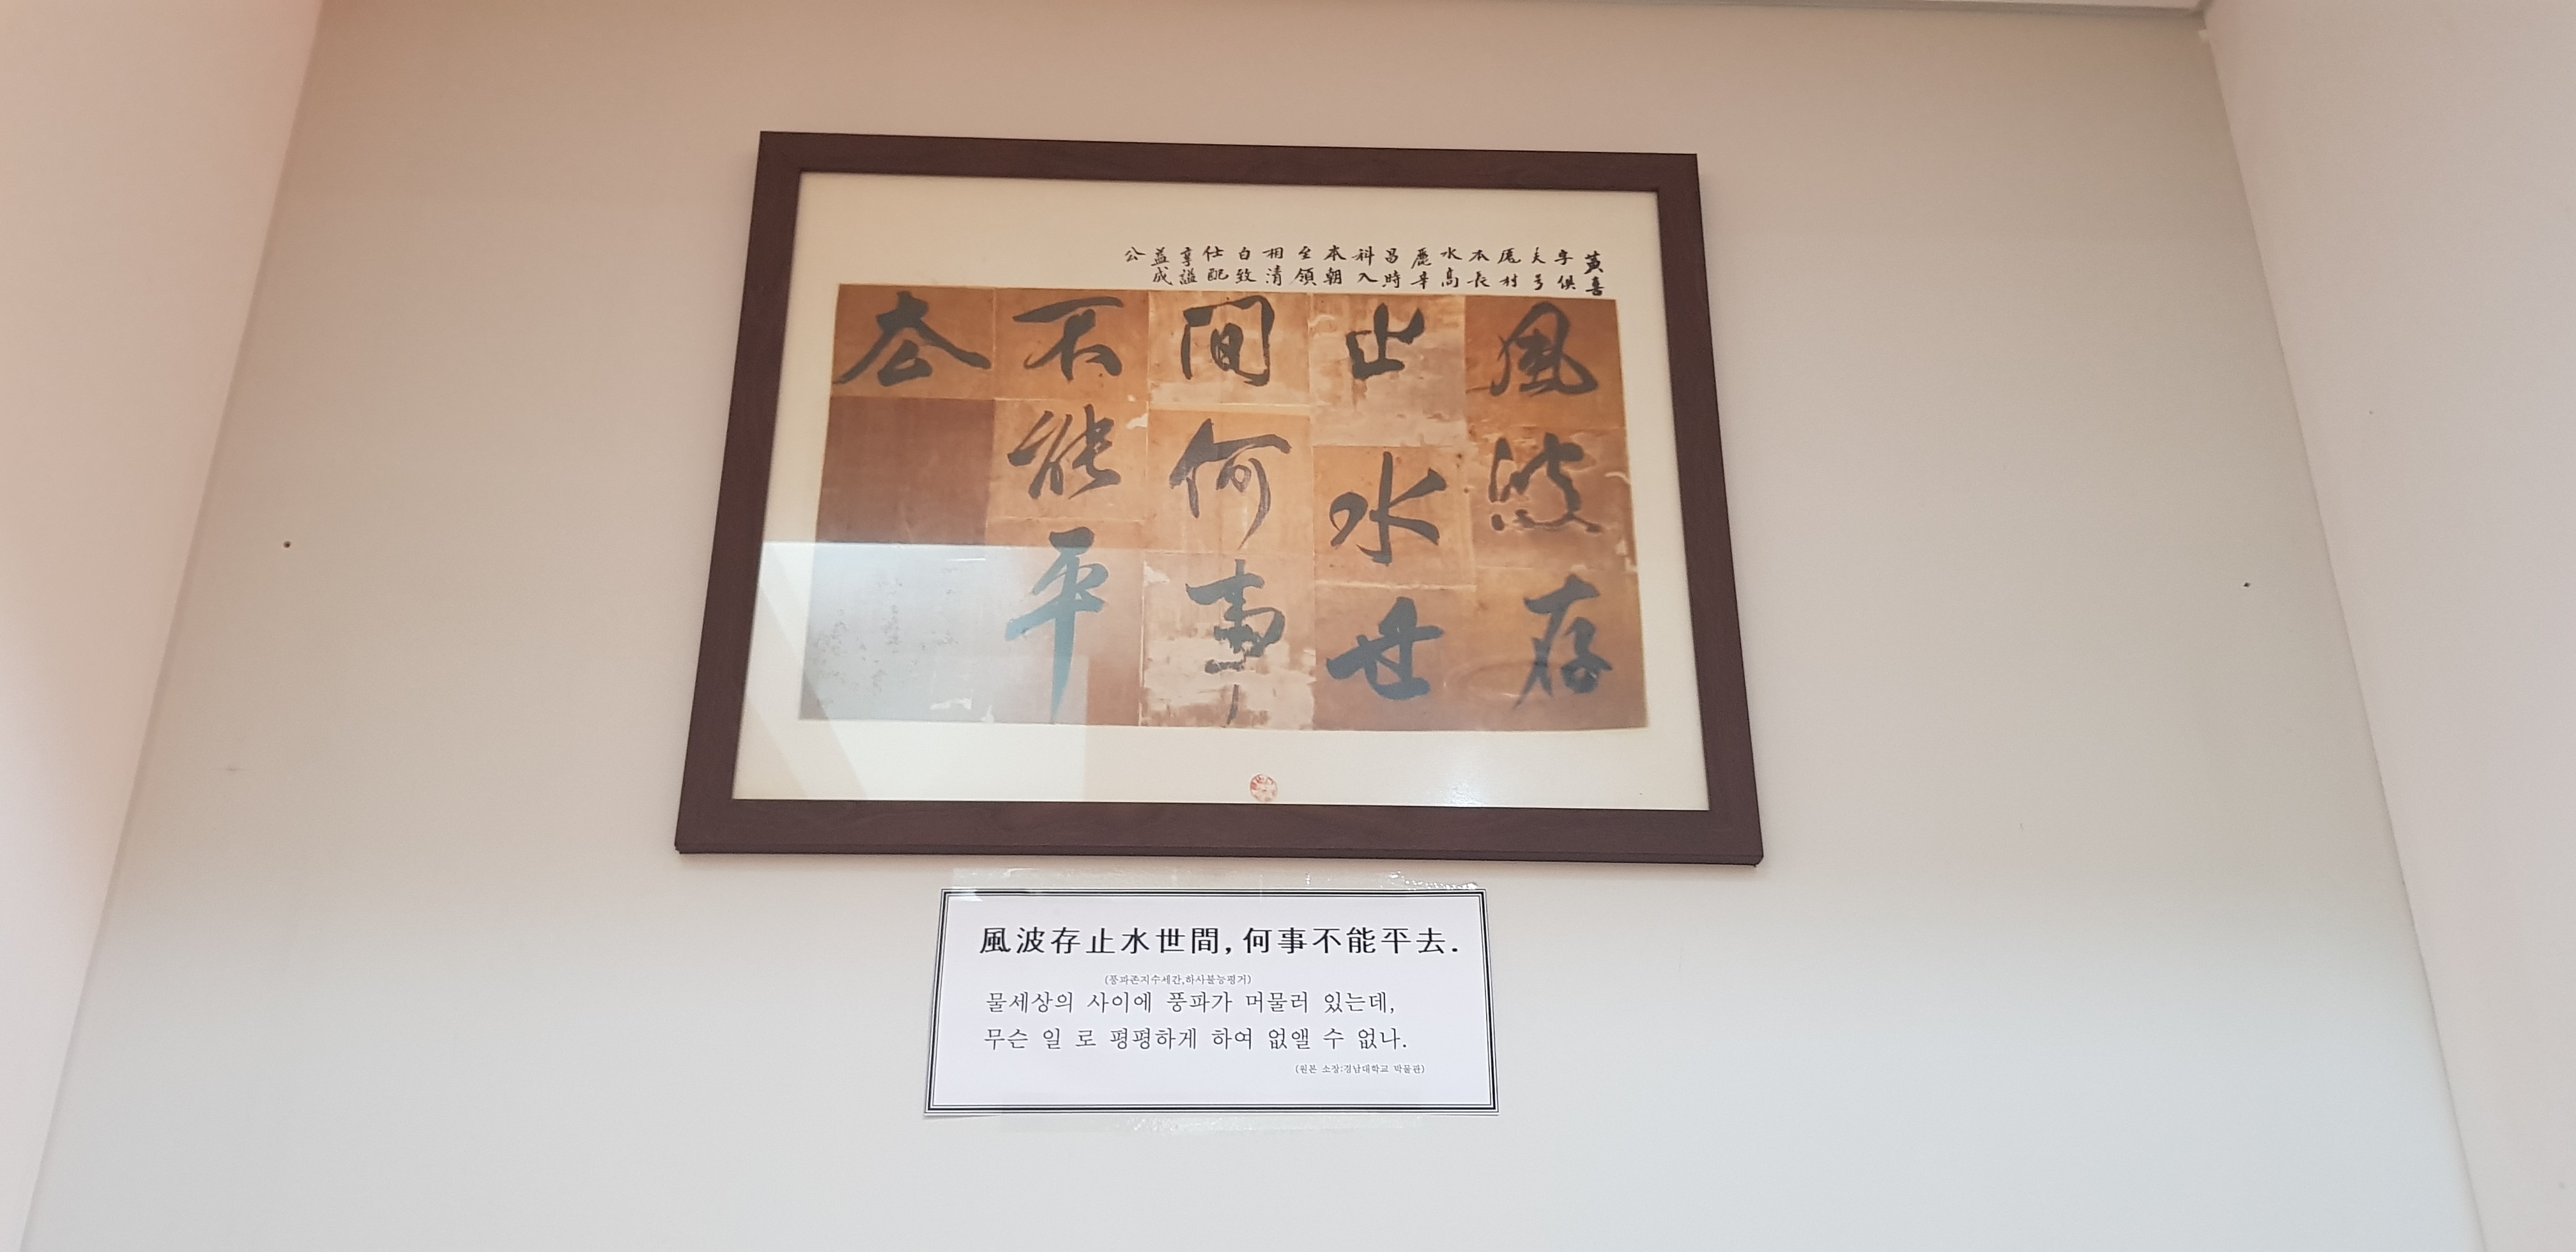 黃喜
字俱
夫号
厖村
本長
水高
麗辛
昌時
科入
本朝
至領
相清
白致
仕配
享謚
益成
公
風波存
止水世
間何事
不能平
去
風波存止水世間, 何事不能平去.
(풍파존지수세간,하사불능평거)
물세상의 사이에 풍파가 머물러 있는데,
무슨 일 로 평평하게 하여 없앨 수 없나.
(원본 소장:경남대학교 박물관)